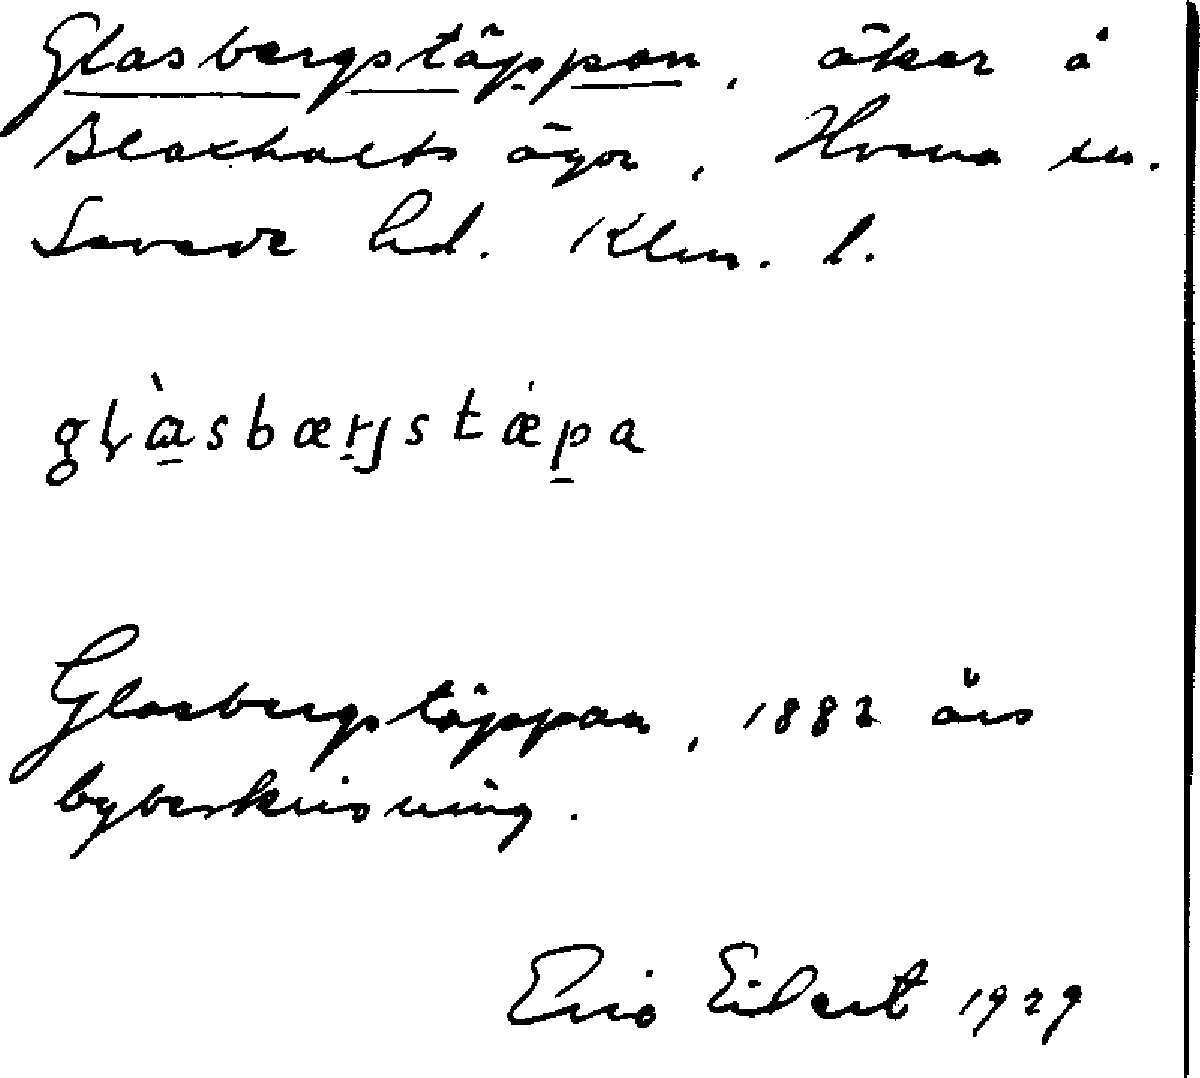 Glasbergstäppan, åker å
Blaxhults ägor, Horna sn.
Sevede hd. Klm. l.
gḷàsbærjstǽpa
Glasbergstäppan, 1882 års
bybeskrivning.
Eric Eilert 1929